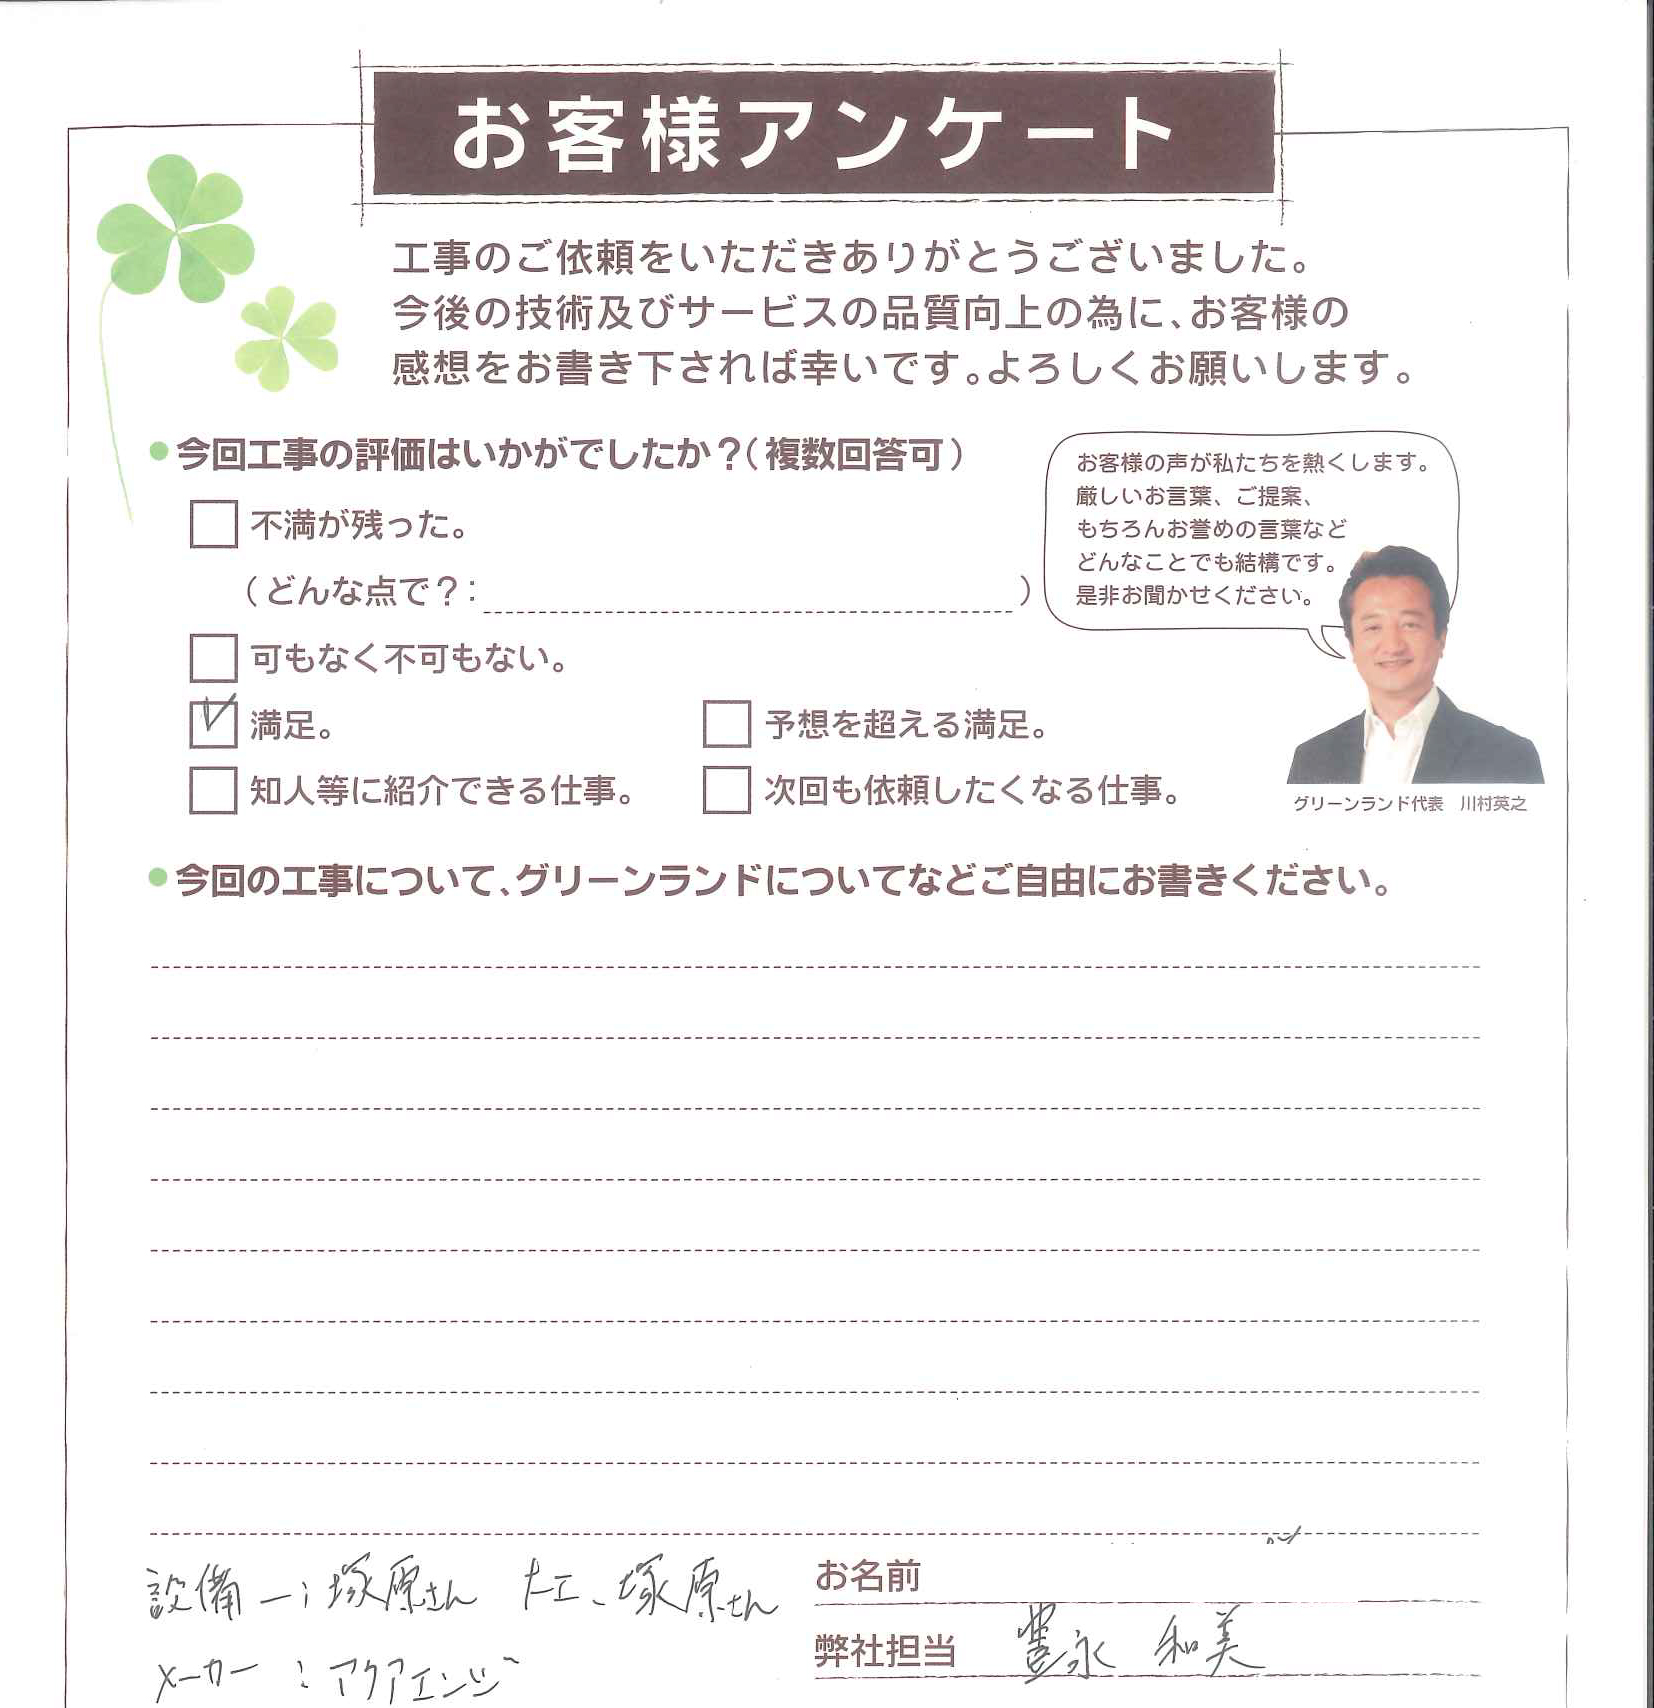 お客様アンケート
工事のご依頼をいただきありがとうございました。
今後の技術及びサービスの品質向上の為に、お客様の
感想をお書き下されば幸いです。よろしくお願いします。
●今回工事の評価はいかがでしたか？(複数回答可)
不満が残った。
(どんな点で？: )
可もなく不可もない。
満足。 予想を超える満足。
知人等に紹介できる仕事。 次回も依頼したくなる仕事。
お客様の声が私たちを熱くします。
厳しいお言葉、ご提案、
もちろんお誉めの言葉など
どんなことでも結構です。
是非お聞かせください。
グリーンランド代表 川村英之
●今回の工事について、グリーンランドについてなどご自由にお書きください。
設備ー：塚原さん 大工、塚原さん
メーカー：アクアエンジ
お名前
弊社担当 豊永 和美